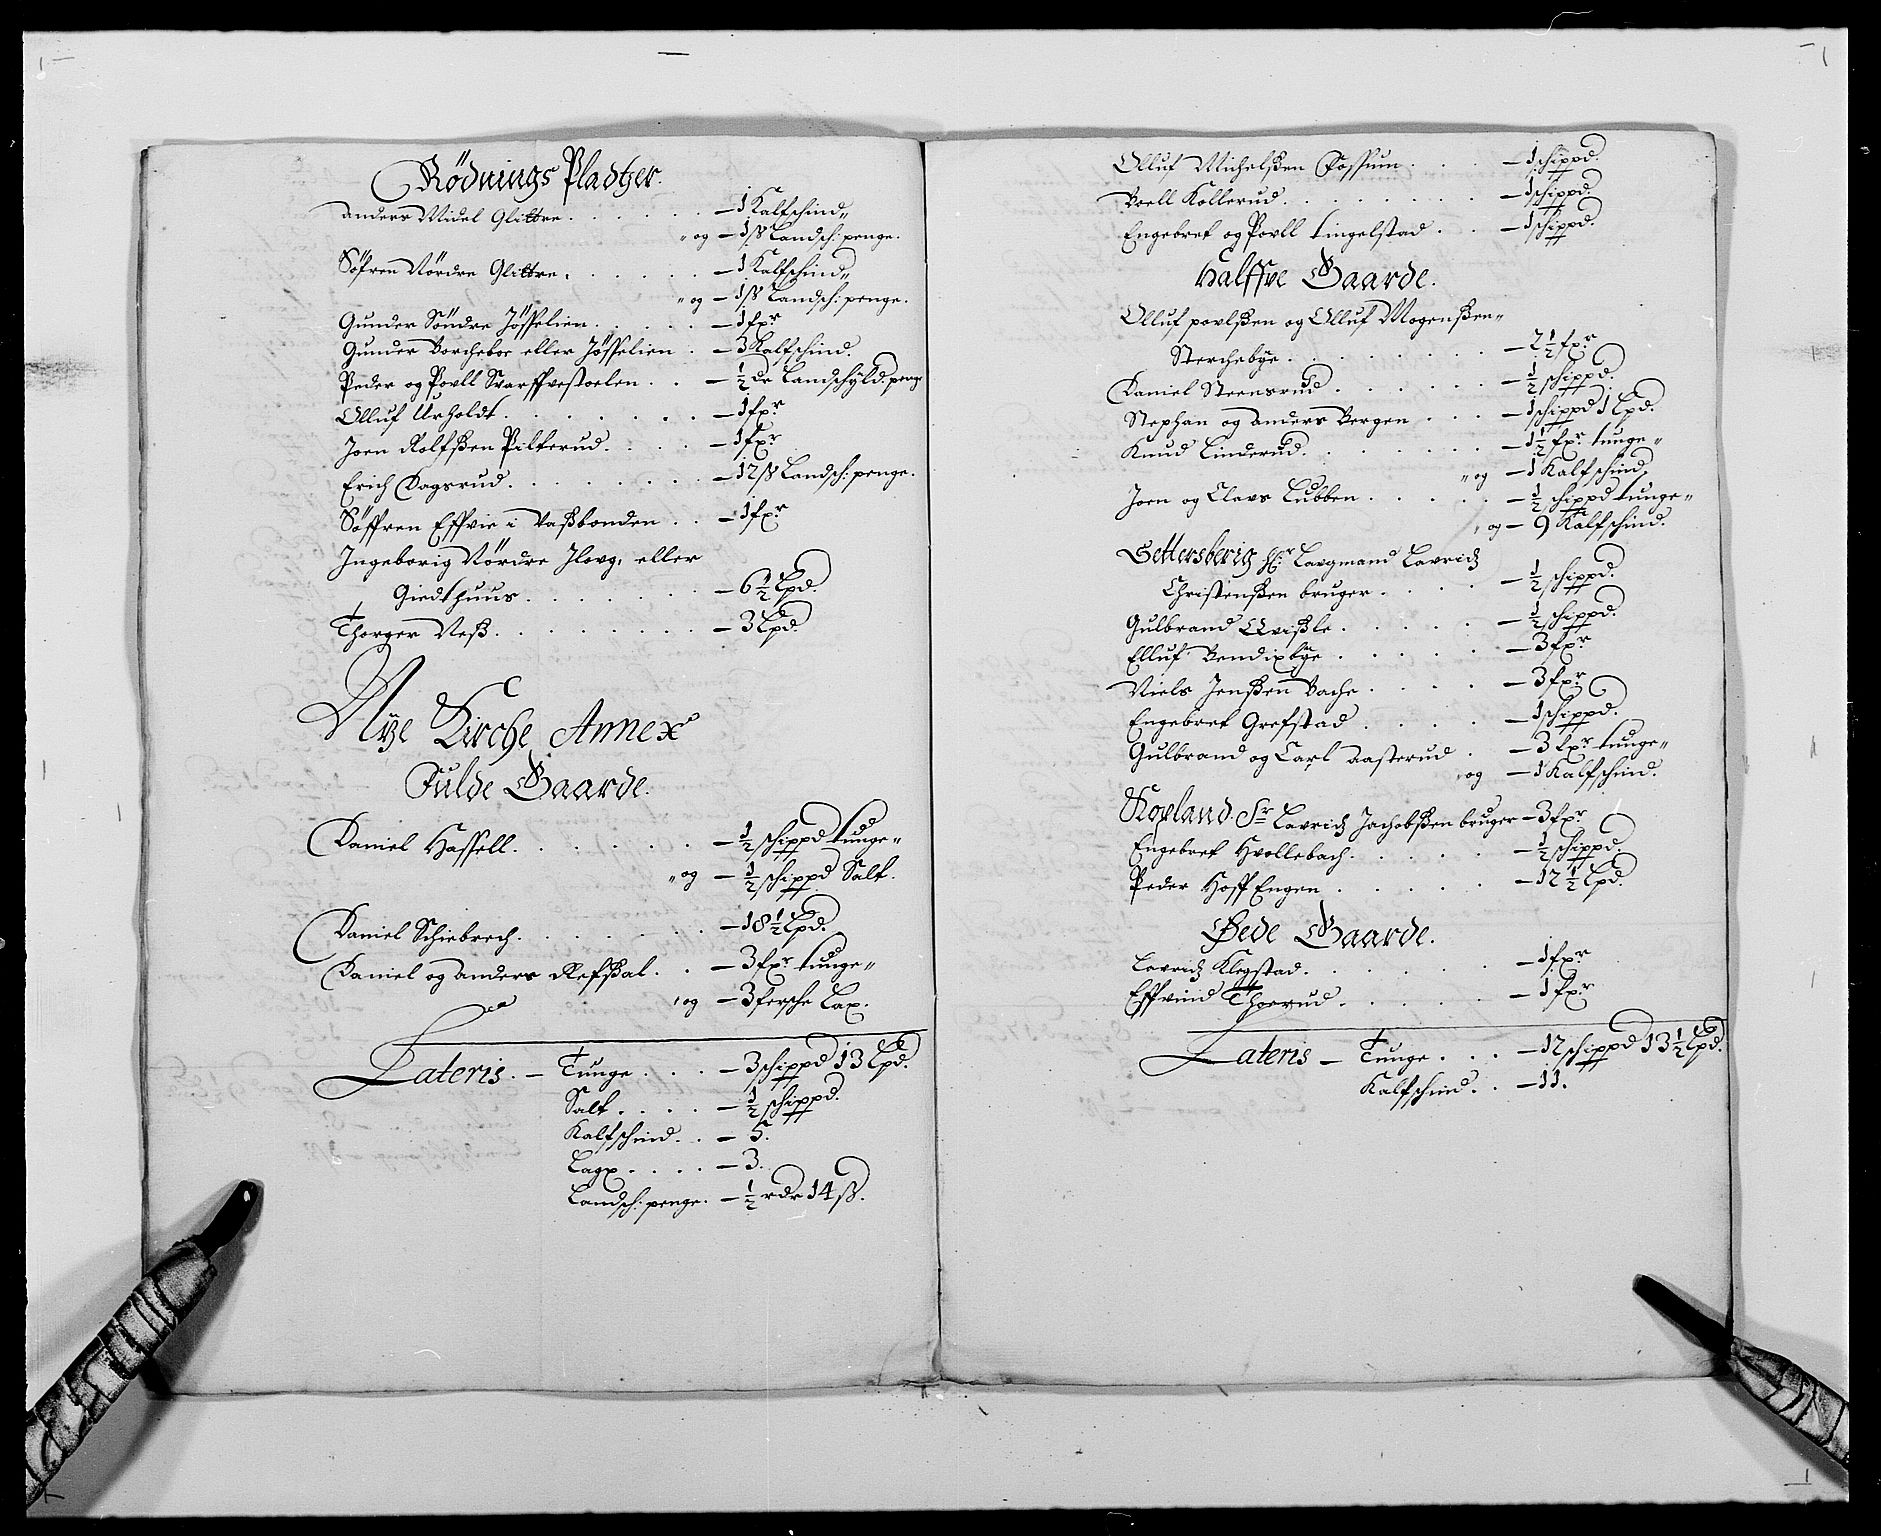 Rödnings Pladtzer.
Anders Midel Glittre . . . . . . — 1 Kalfschind„
„ og — 1 ß Landsch: penge.
Söfren Nördre Glittre . . . . . . — 1 Kalfschind„
„ og — 1 ß Landsch: penge.
Gunder Söndre Jösselien . . . . . — 1 fxr
Gunder Borcheboe eller Jösselien . — 3 Kalfschind.
Peder og Povll Svarffvestoelen . . — ½ dr Landschÿld: peng
Olluf Urholdt . . . . . . . — 1 fxr
Joen Rolfßen Pilterud . . . . — 1 fxr
Erich Dagsrud . . . . . . . — 12 ß Landsch: penge.
Söffren Effvie i Vaßbonden . . — 1 fxr
Ingeborig Nördre Ilovg, eller
Giedthuus . . . . . . . — 6½ Lpd.
Thorger Neß . . . . . . . . — 3 Lpd.
Nye Kirche Annex
Fulde Gaarde.
Daniel Hassell . . . . . . — ½ schippd tunge„
„ og — ½ schippd Salt.
Daniel Schiebrech . . . . . . . — 18½ Lpd.
Daniel og Anders Refßal . . — 3 fxr tunge„
„ og — 3 fersche Lax.
Lateris. — Tunge . . . — 3 schippd 13 Lpd.
Salt . . . . — ½ schippd.
Kalfschind . . — 5.
Lagx . . . . — 3.
Landsch: penge . — ½ rdr 14 ß.
Olluf Michelßen Fossum . . . — 1 schippd.
Boell Kollerud . . . . . . . . — 1 schippd.
Engebret og Povll Tingelstad . . — 1 schippd.
Halffve Gaarde.
Olluf Povlßen og Olluf Mogenßen„
Sterchebye . . . . . . . . — 2½ fxr
Daniel Steensrud . . . . . . — ½ schippd.
Stephan og Anders Bergen . . . — 1 schippd 1 Lpd.
Knud Linderud . . . . . . . — 1½ fxr tunge„
„ og — 1 Kalfschind.
Joen og Clavs Lubben . . . . . — ½ schippd tunge„
„ og — 9 Kalfschind.
Settersberig Hr: Lavgmand Lavridz
Christenßen bruger . . . . — ½ schippd.
Gulbrand Qvißle . . . . . — ½ schippd.
Elluf Bendixbye . . . . . — 3 fxr
Niels Jenßen Bache . . . . — 3 fxr
Engebret Grefstad . . . . — 1 schippd.
Gulbrand og Carl Aasterud . — 3 fxr tunge„
„ og — 1 Kalfschind.
Kopland Sr Lavridz Jachobßen bruger — 3 fxr
Engebret Hvollebach . . . . — ½ schippd.
Peder Hoff Engen . . . . . — 12½ Lpd.
Øede Gaarde.
Lavridz Klegstad . . . . . . — 1 fxr
Effvind Thorrud . . . . . — 1 fxr
Lateris — Tunge . . . — 12 schippd 13½ Lpd.
Kalfschind . . — 11.